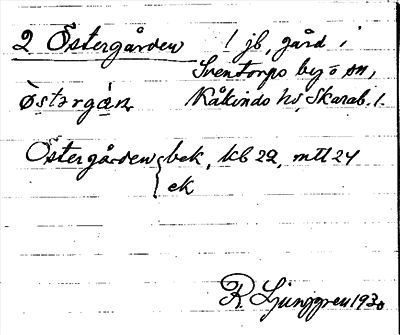 2 Östergården / jb, gård i
Sventorps by o sn,
östərgán Kåkinds hd, Skarab. l.
Östergården { bek, kb 22, mtl 24
ek
R. Ljunggren 1930